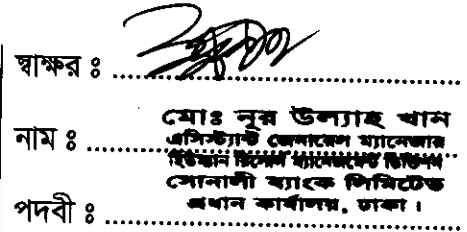 স্বাক্ষর ঃ
মোঃ নূর উল্যাহ খান
নাম ঃ
এসিস্ট্যান্ট জেনারেল ম্যানেজার
হিউম্যান রিসোর্স ম্যানেজমেন্ট ডিভিশন
সোনালী ব্যাংক লিমিটেড
পদবী ঃ
প্রধান কার্যালয়, ঢাকা।